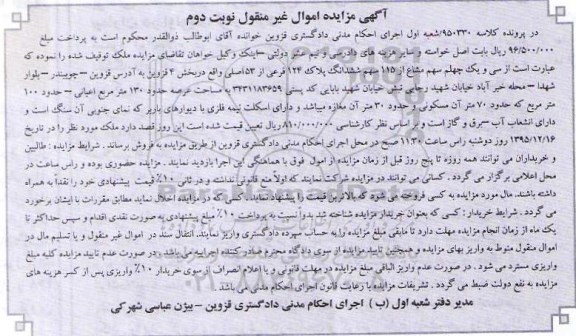 آگهی مزایده اموال غیر منقول نوبت دوم
در پرونده کلاسه ۹۵۰۳۳۰/شعبه اول اجرای احکام مدنی دادگستری قزوین خوانده آقای ابوطالب ذوالقدر محکوم است به پرداخت مبلغ
۹۶/۵۰۰/۰۰۰ ریال بابت اصل خواسته و سایر هزینه های دادرسی و نیم عشر دولتی –اینک وکیل خواهان تقاضای مزایده ملک توقیف شده را نموده که
عبارت است از سی و یک چهلم سهم مشاع از ۱۱۵ سهم ششدانگ پلاک ۱۲۴ فرعی از ۵۳ اصلی واقع دربخش ۴ قزوین به آدرس قزوین –چوبیندر –بلوار
شهدا – محله خیر آباد خیابان شهید رجایی نبش خیابان شهید بابایی کد پستی ۳۴۳۱۱۸۳۶۵۹ به مساحت عرصه حدود ۱۳۰ متر مربع اعیانی – حدود ۱۰۰
متر مربع که حدود ۷۰ متر آن مسکونی و حدود ۳۰ متر آن مغازه میباشد و دارای اسکلت نیمه فلزی با دیوارهای باربر که نمای جنوبی آن سنگ است و
دارای انشعاب آب –برق و گاز است و بر اساس نظر کارشناسی ۸۱۰/۰۰۰/۰۰۰ ریال تعیین قیمت شده است این روز قصد دارد ملک مورد نظر را در تاریخ
۱۳۹۵/۱۲/۱۶ روز دوشنبه راس ساعت ۱۱:۳۰ صبح در محل اجرای احکام مدنی دادگستری قزوین از طریق مزایده به فروش برساند . شرایط مزایده : طالبین
و خریداران می توانند همه روزه تا پنج روز قبل از زمان مزایده از اموال فوق با هماهنگی این اجرا بازدید نمایند . مزایده حضوری بوده و راس ساعت در
محل اعلامی برگزار می گردد . کسانی می توانند در مزایده شرکت نمایند که اولاً منع قانونی نداشته و در ثانی ۱۰٪ قیمت پیشنهادی خود را نقداً به همراه
داشته باشند. مال مورد مزایده به کسی فروخته می شود که بالاترین قیمت را پیشنهاد نماید. کسی که در مزایده اخلال نماید مطابق مقررات با ایشان برخورد
می گردد . شرایط خریدار : کسی که بعنوان خریدار مزایده شناخته شد بدواً نسبت به پرداخت ۱۰٪ مبلغ پیشنهادی به صورت نقدی اقدام و سپس حداکثر تا
یک ماه از زمان انجام مزایده مهلت دارد تا مابقی مبلغ مزایده را به حساب سپرده دادگستری واریز نمایند. انتقال سند در اموال غیر منقول و یا تسلیم مال در
اموال منقول منوط به واریز بهای مزایده و همچنین تایید مزایده از سوی دادگاه محترم صادر کننده اجراییه می باشد . در صورت عدم تایید مزایده کلیه مبلغ
واریزی مسترد می شود . در صورت عدم واریز الباقی مبلغ مزایده در مهلت قانونی و یا اعلام انصراف از سوی خریدار ۱۰٪ واریزی پس از کسر هزینه های
مزایده به نفع دولت ضبط می گردد . تشریفات مزایده با رعایت قانون اجرای احکام مدنی می باشد
مدیر دفتر شعبه اول (ب ) اجرای احکام مدنی دادگستری قزوین – بیژن عباسی شهرکی